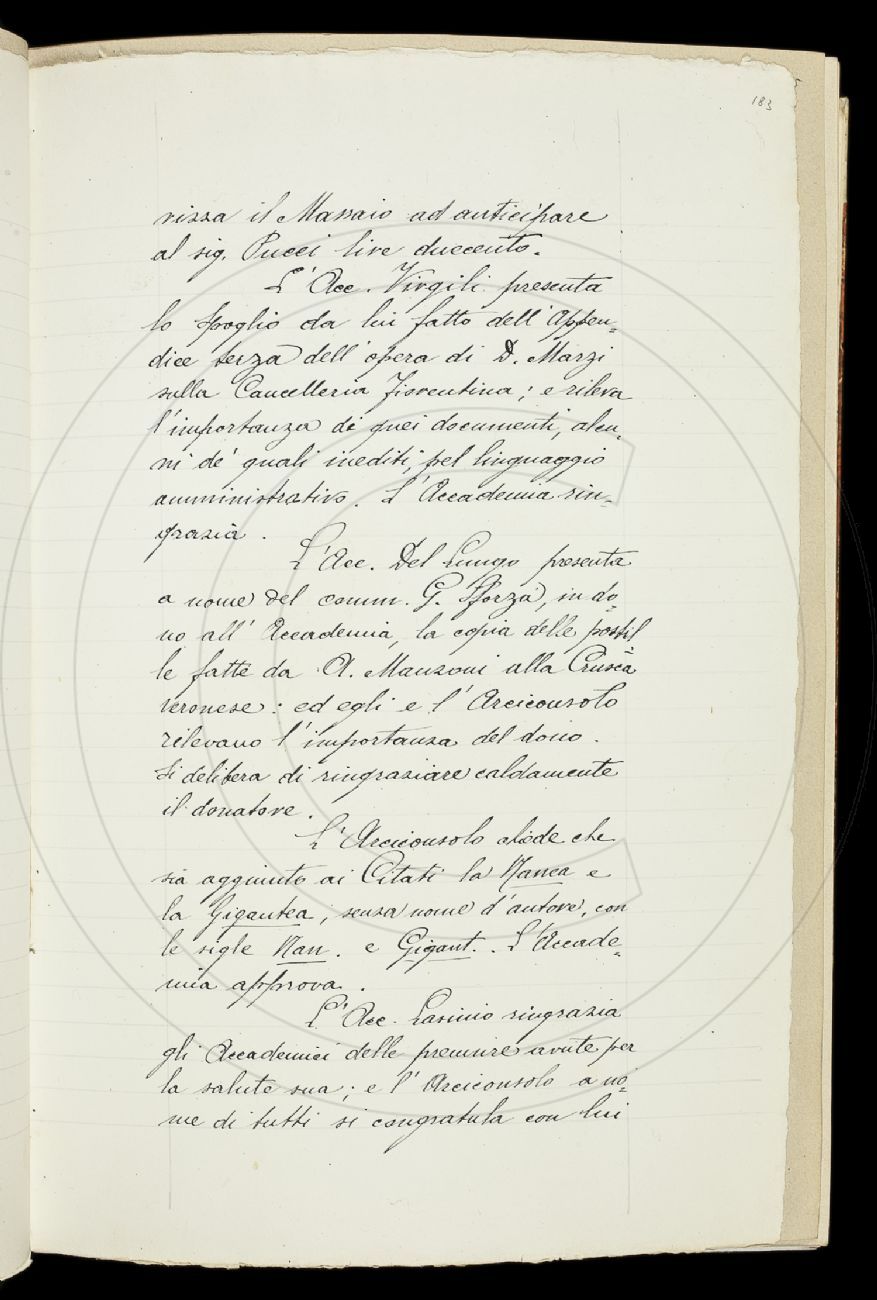 183
rizza il Massaio ad anticipare
al sig. Pucci lire duecento.
L'Acc. Virgili presenta
lo spoglio da lui fatto dell'Appen-
dice terza dell'opera di D. Marzi
sulla Cancelleria fiorentina; e rileva
l'importanza di quei documenti, alcu-
ni de' quali inediti, pel linguaggio
amministrativo. L'Accademia rin-
grazia.
L'Acc. Del Lungo presenta
a nome del comm. G. Sforza, in do-
no all'Accademia, la copia delle postil
le fatte da A. Manzoni alla Crusca
veronese: ed egli e l'Arciconsolo
rilevano l'importanza del dono.
Si delibera di ringraziare caldamente
il donatore.
L'Arciconsolo chiede che
sia aggiunto ai Citati la Nanea e
la Gigantea, senza nome d'autore, con
le sigle Nan. e Gigant.. L'Accade-
mia approva.
L'Acc. Rasinio ringrazia
gli Accademici delle premure avute per
la salute sua; e l'Arciconsolo a no-
me di tutti si congratula con lui